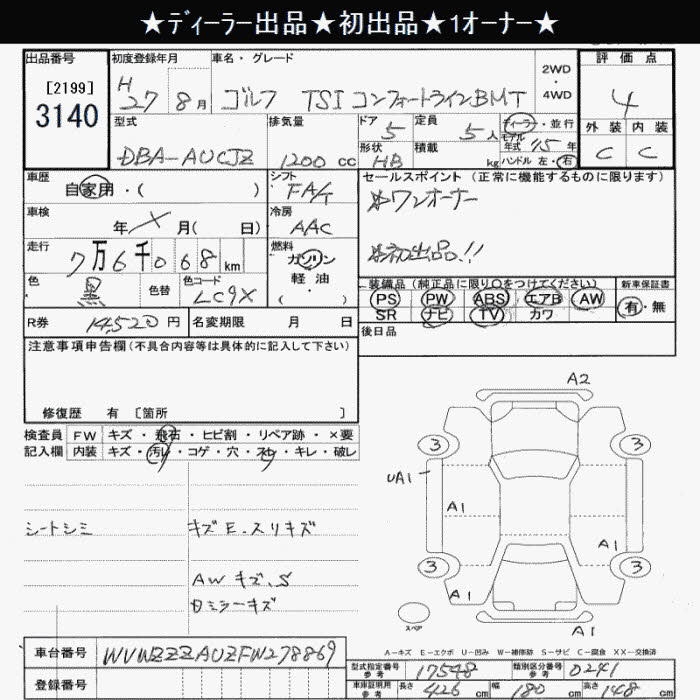 ★ディーラー出品★初出品★1オーナー★
出品番号 初度登録年月 車名・グレード 2WD・4WD 評価点
[2199] 3140
H27 8月 ゴルフ TSI コンフォートラインBMT 4
型式 排気量 ドア 定員 ディーラー・並行 外装 内装
DBA-AUCJZ 1200 cc 5 5人 モデル年式 15年 C C
形状 HB 積載 kg ハンドル 左・右
車歴 自家用・( ) シフト FA/T セールスポイント (正常に機能するものに限ります)
車検 年 月( 日) 冷房 AAC ※ワンオーナー
走行 7万6千068km 燃料 ガソリン・軽・油・( ) ※初出品!!
色 黒 色替 色コード LC9X
装備品 (純正品に限り〇をつけてください) 新車保証書
PS PW ABS エアB AW 有・無
SR ナビ TV カワ
R券 14,520円 名変期限 月 日 後日品
注意事項申告欄(不具合内容等は具体的に記入して下さい)
修復歴 有 [箇所 ]
検査員記入欄 FW キズ・飛石・ヒビ割・リペア跡・×要
内装 キズ・汚レ・コゲ・穴・スレ・キレ・破レ
シートシミ キズE.スリキズ
AWキズ.S
ミラーキズ
A2
3 3
UA1
A1
A1
3 3
A1 A1
スペア
A1
A-キズ E-エクボ U-凹み W-補修跡 S-サビ C-腐食 XX-交換済
車台番号 WVWZZZAUZFW278869
登録番号
型式指定番号 参考 17548 類別区分番号 参考 0241
車庫証明用 参考 長さ 426cm 幅 180cm 高さ 148cm